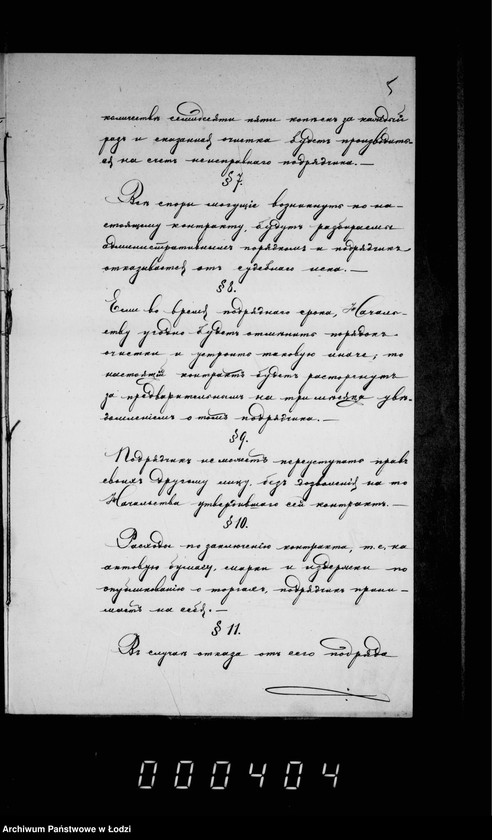 5
количествѣ семидесяти пяти копѣекъ за каждый
разъ и сказанная очистка будетъ производить-
ся на счетъ неисправнаго подрядчика. —
§ 7.
Всѣ споры могущіе возникнуть по на-
стоящему контракту, будутъ разбираемы
административнымъ порядкомъ и подрядчикъ
отказывается отъ судебнаго иска. —
§ 8.
Если во время подряднаго срока, Началь-
ству угодно будетъ отмѣнить порядокъ
очистки и устроить таковую иначе, то
настоящій контрактъ будетъ расторгнутъ
за предварительнымъ на три мѣсяца увѣ-
домленіемъ о томъ подрядчика. —
§ 9.
Подрядчикъ не можетъ переуступать правъ
своихъ другому лицу, безъ дозволенія на то
Начальства утвердившаго сей контрактъ. —
§ 10.
Расходы по заключенію контракта, т. е. на
актовую бумагу, марки и издержки по
опубликованію о торгахъ, подрядчикъ прини-
маетъ на себя. —
§ 11.
Въ случаѣ отказа отъ сего подряда
000404
Archiwum Państwowe w Łodzi